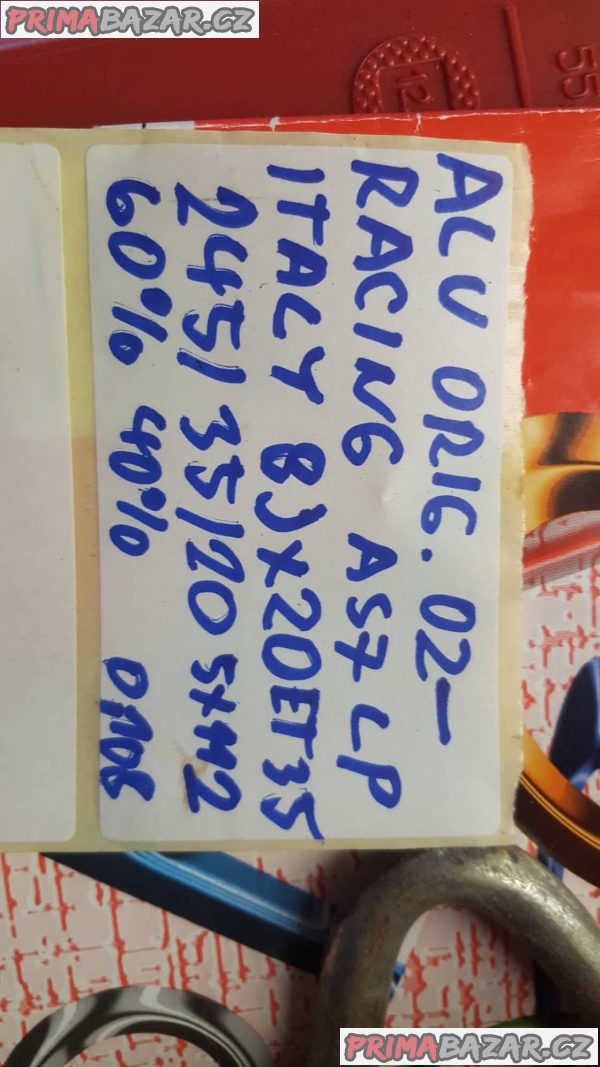 PRIMABAZAR.CZ
55
12
ALU ORIG. 02-
RACING AS7 LP
ITALY 8Jx20ET35
245/35/20 5x112
60% 40%
PRIMABAZAR.CZ